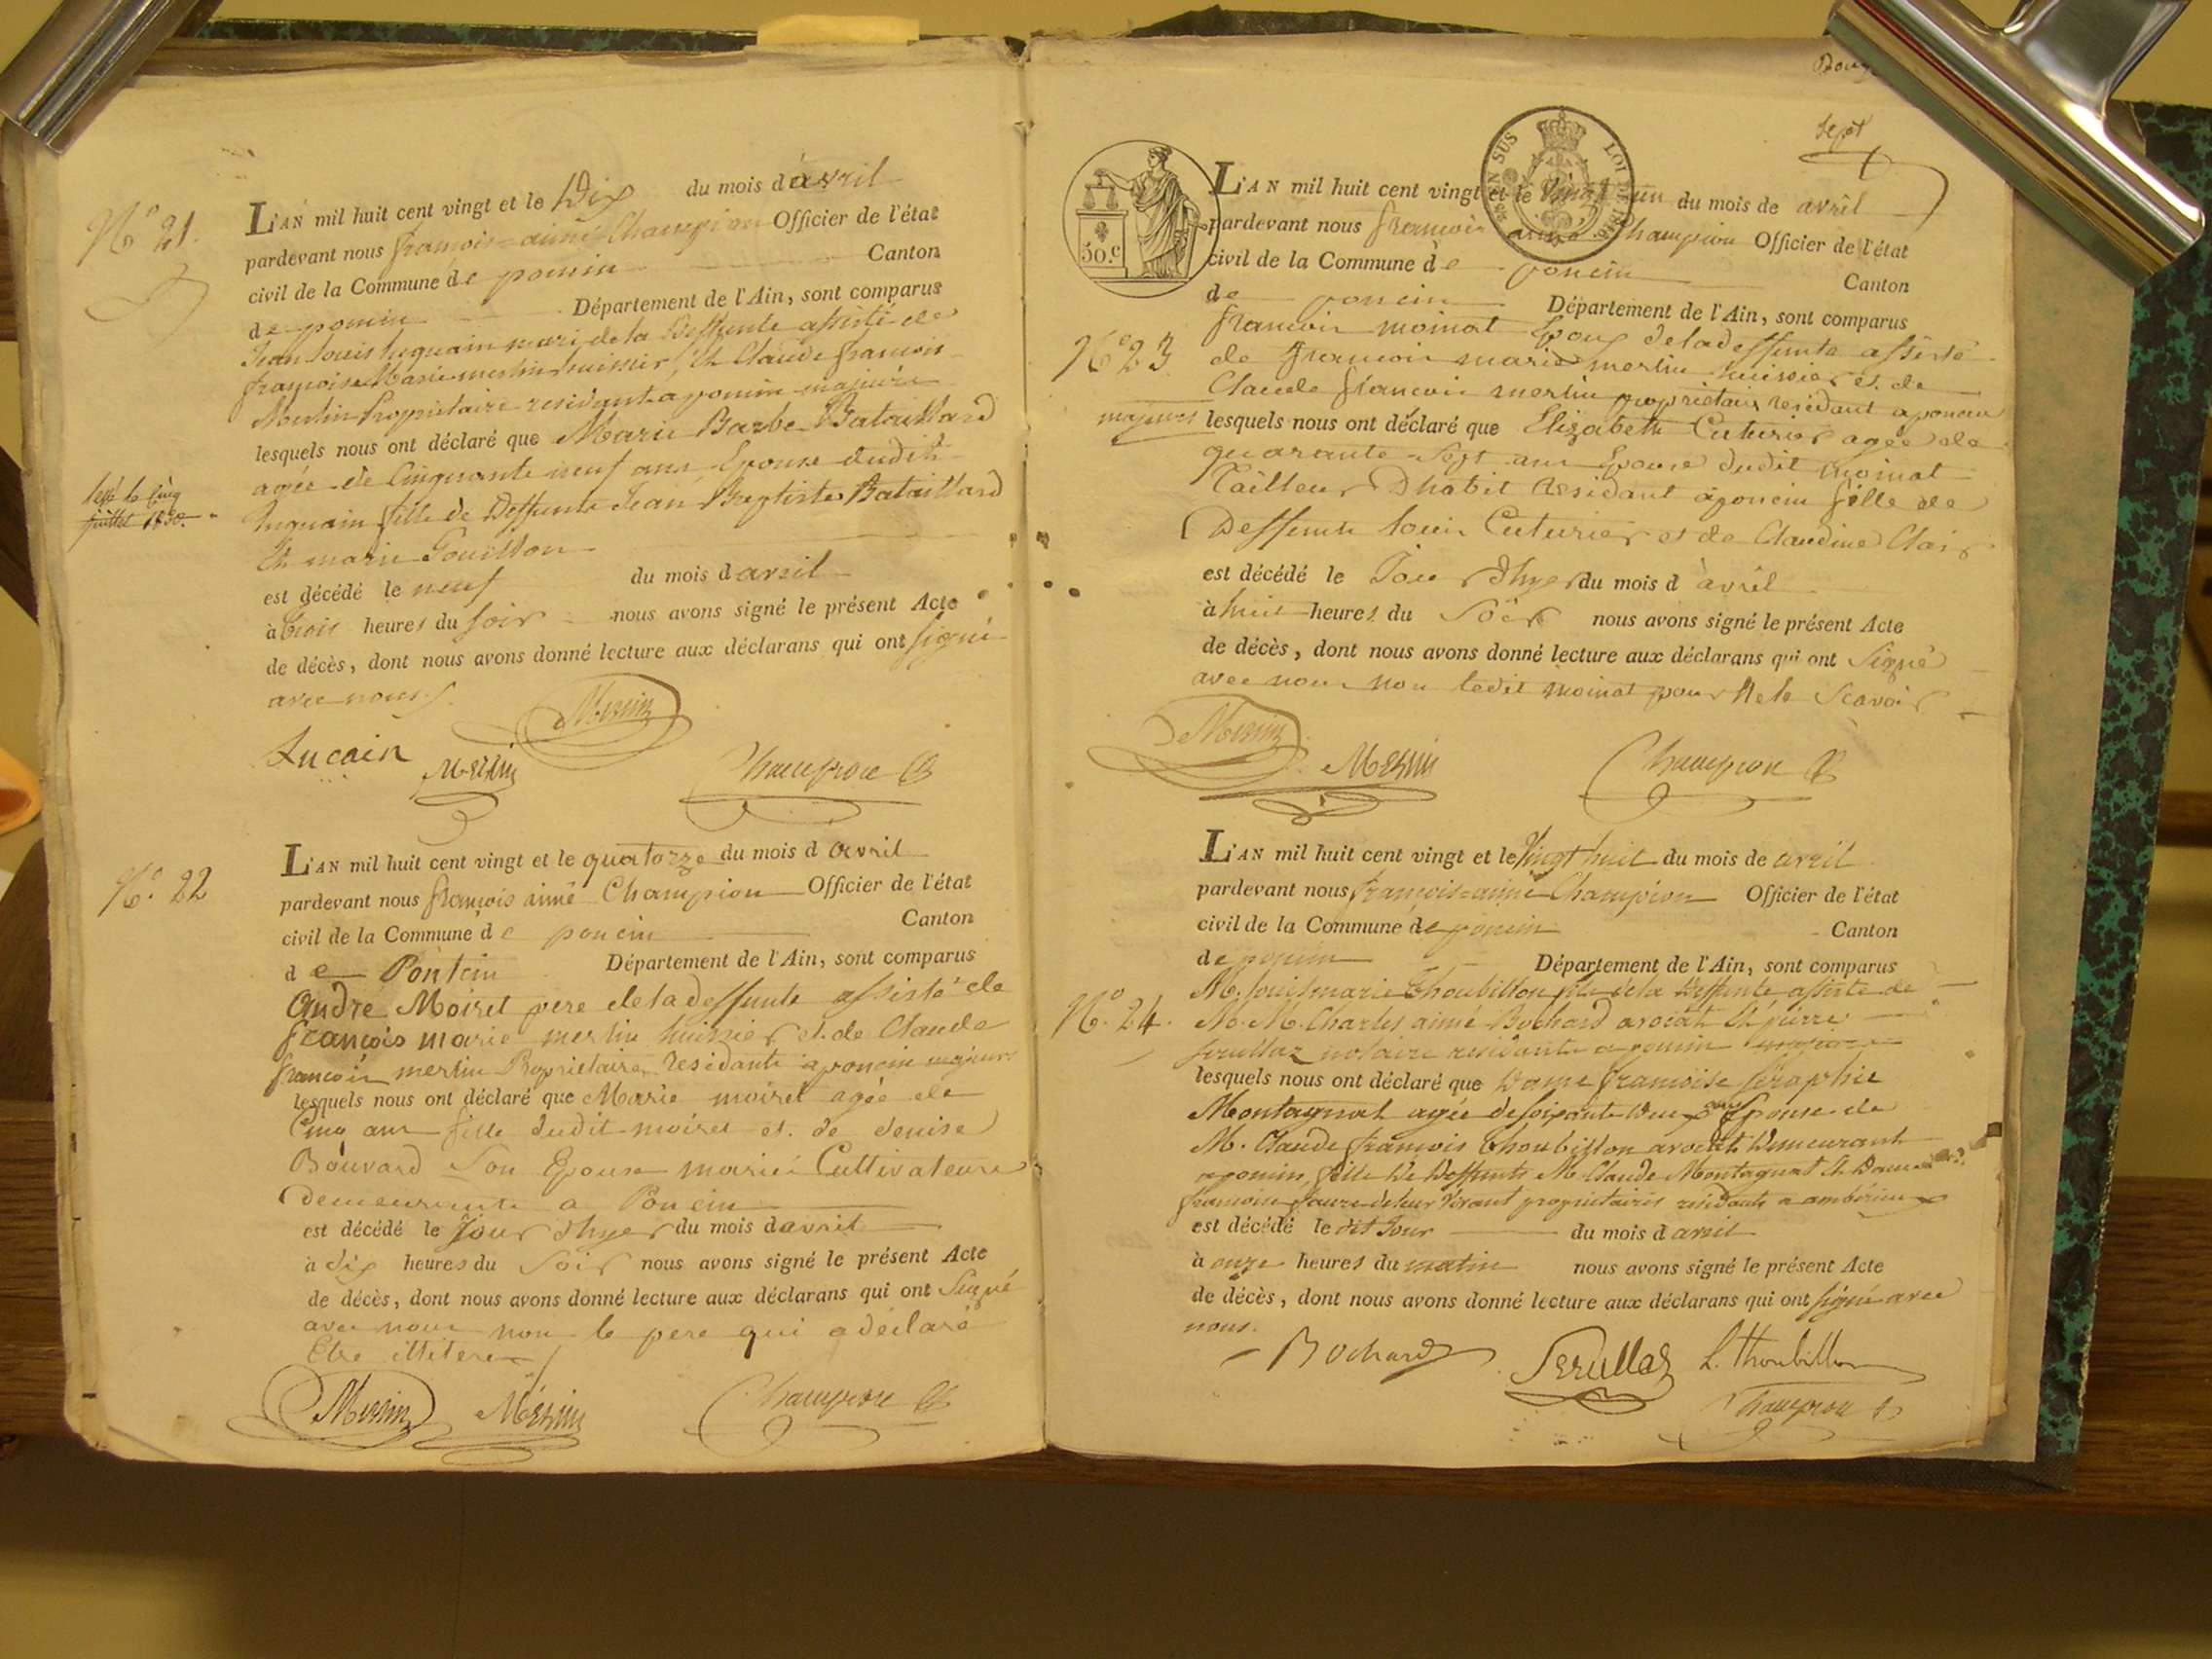 N.º 21.
L'AN mil huit cent vingt et le Dix du mois d'avril
pardevant nous françois=aimé Champion Officier de l'état
civil de la Commune de poncin Canton
de poncin Département de l'Ain, sont comparus
Jean Louis luquain mari de la Deffunte assisté de
françoise Marie merlin huissier, Et Claude françois
Merlin Propriétaire residant a poncin majeurs
lesquels nous ont déclaré que Marie Barbe Bataillard
agée de Cinquante neuf ans Epouse dudit
luquain fille de Deffunte Jean Baptiste Bataillard
Et marie Gouillon
levé le cinq
juillet 1830.
est décédé le neuf du mois d'avril
à trois heures du soir nous avons signé le présent Acte
de décès, dont nous avons donné lecture aux déclarans qui ont signé
avec nous.
Merlin
Lucain Merlin Champion
N.º 22
L'AN mil huit cent vingt et le quatorze du mois d avril
pardevant nous françois aimé Champion Officier de l'état
civil de la Commune de poncin Canton
de Pontcin Département de l'Ain, sont comparus
André Moiret pere de la deffunte assisté de
françois marie merlin huissier et de Claude
françois merlin Proprietaire residants a poncin majeurs
lesquels nous ont déclaré que Marie moiret agée de
Cinq ans fille dudit moiret et de denise
Bouvard Son Epouse mariés Cultivateurs
demeurants a Poncin
est décédé le Jour dhyer du mois d avril
à dix heures du Soir nous avons signé le présent Acte
de décès, dont nous avons donné lecture aux déclarans qui ont Signé
avec nous non le pere qui a déclaré
Etre illitere
Merlin Merlin Champion
Sept
50.c
EN SUS LOI DE 1816
L'AN mil huit cent vingt et le Vingt un du mois de avril
pardevant nous françois aimé Champion Officier de l'état
civil de la Commune de poncin Canton
de poncin Département de l'Ain, sont comparus
N.º 23.
francois moinat Epoux de la deffunte assisté
de francois marie merlin huissier et de
Claude francois merlin proprietaire residant a poncin
majeurs
lesquels nous ont déclaré que Elizabeth Cuturier agée de
quarante Sept ans Epouse dudit moinat
Tailleur Dhabit Residant a poncin fille de
Deffunte Louis Cuturier et de Claudine Clair
est décédé le Jour dhyer du mois d avril
à huit heures du Soir nous avons signé le présent Acte
de décès, dont nous avons donné lecture aux déclarans qui ont Signé
avec nous non ledit moinat pour Ne le Scavoir
Merlin Merlin Champion
L'AN mil huit cent vingt et le Vingt huit du mois de avril
pardevant nous françois=aimé Champion Officier de l'état
civil de la Commune de poncin Canton
de poncin Département de l'Ain, sont comparus
N.º 24.
M. Louis marie Thoubillon fils de la Deffunte assisté de
M. M. Charles aimé Bochard avocat Et pierre
Serullaz notaire residants a poncin
lesquels nous ont déclaré que Dame françoise Séraphie
Montagnat agée de soixante Deux ans Epouse de
M. Claude françois Thoubillon avocat Demeurant
a poncin, fille de Deffunts M. Claude Montagnat Et Dame
francoise faure de leur Vivant proprietaires residants a ambérieux
est décédé le dit Jour du mois d avril
à onze heures du matin nous avons signé le présent Acte
de décès, dont nous avons donné lecture aux déclarans qui ont signé avec
nous.
Bochard Serullaz L. Thoubillon
Champion